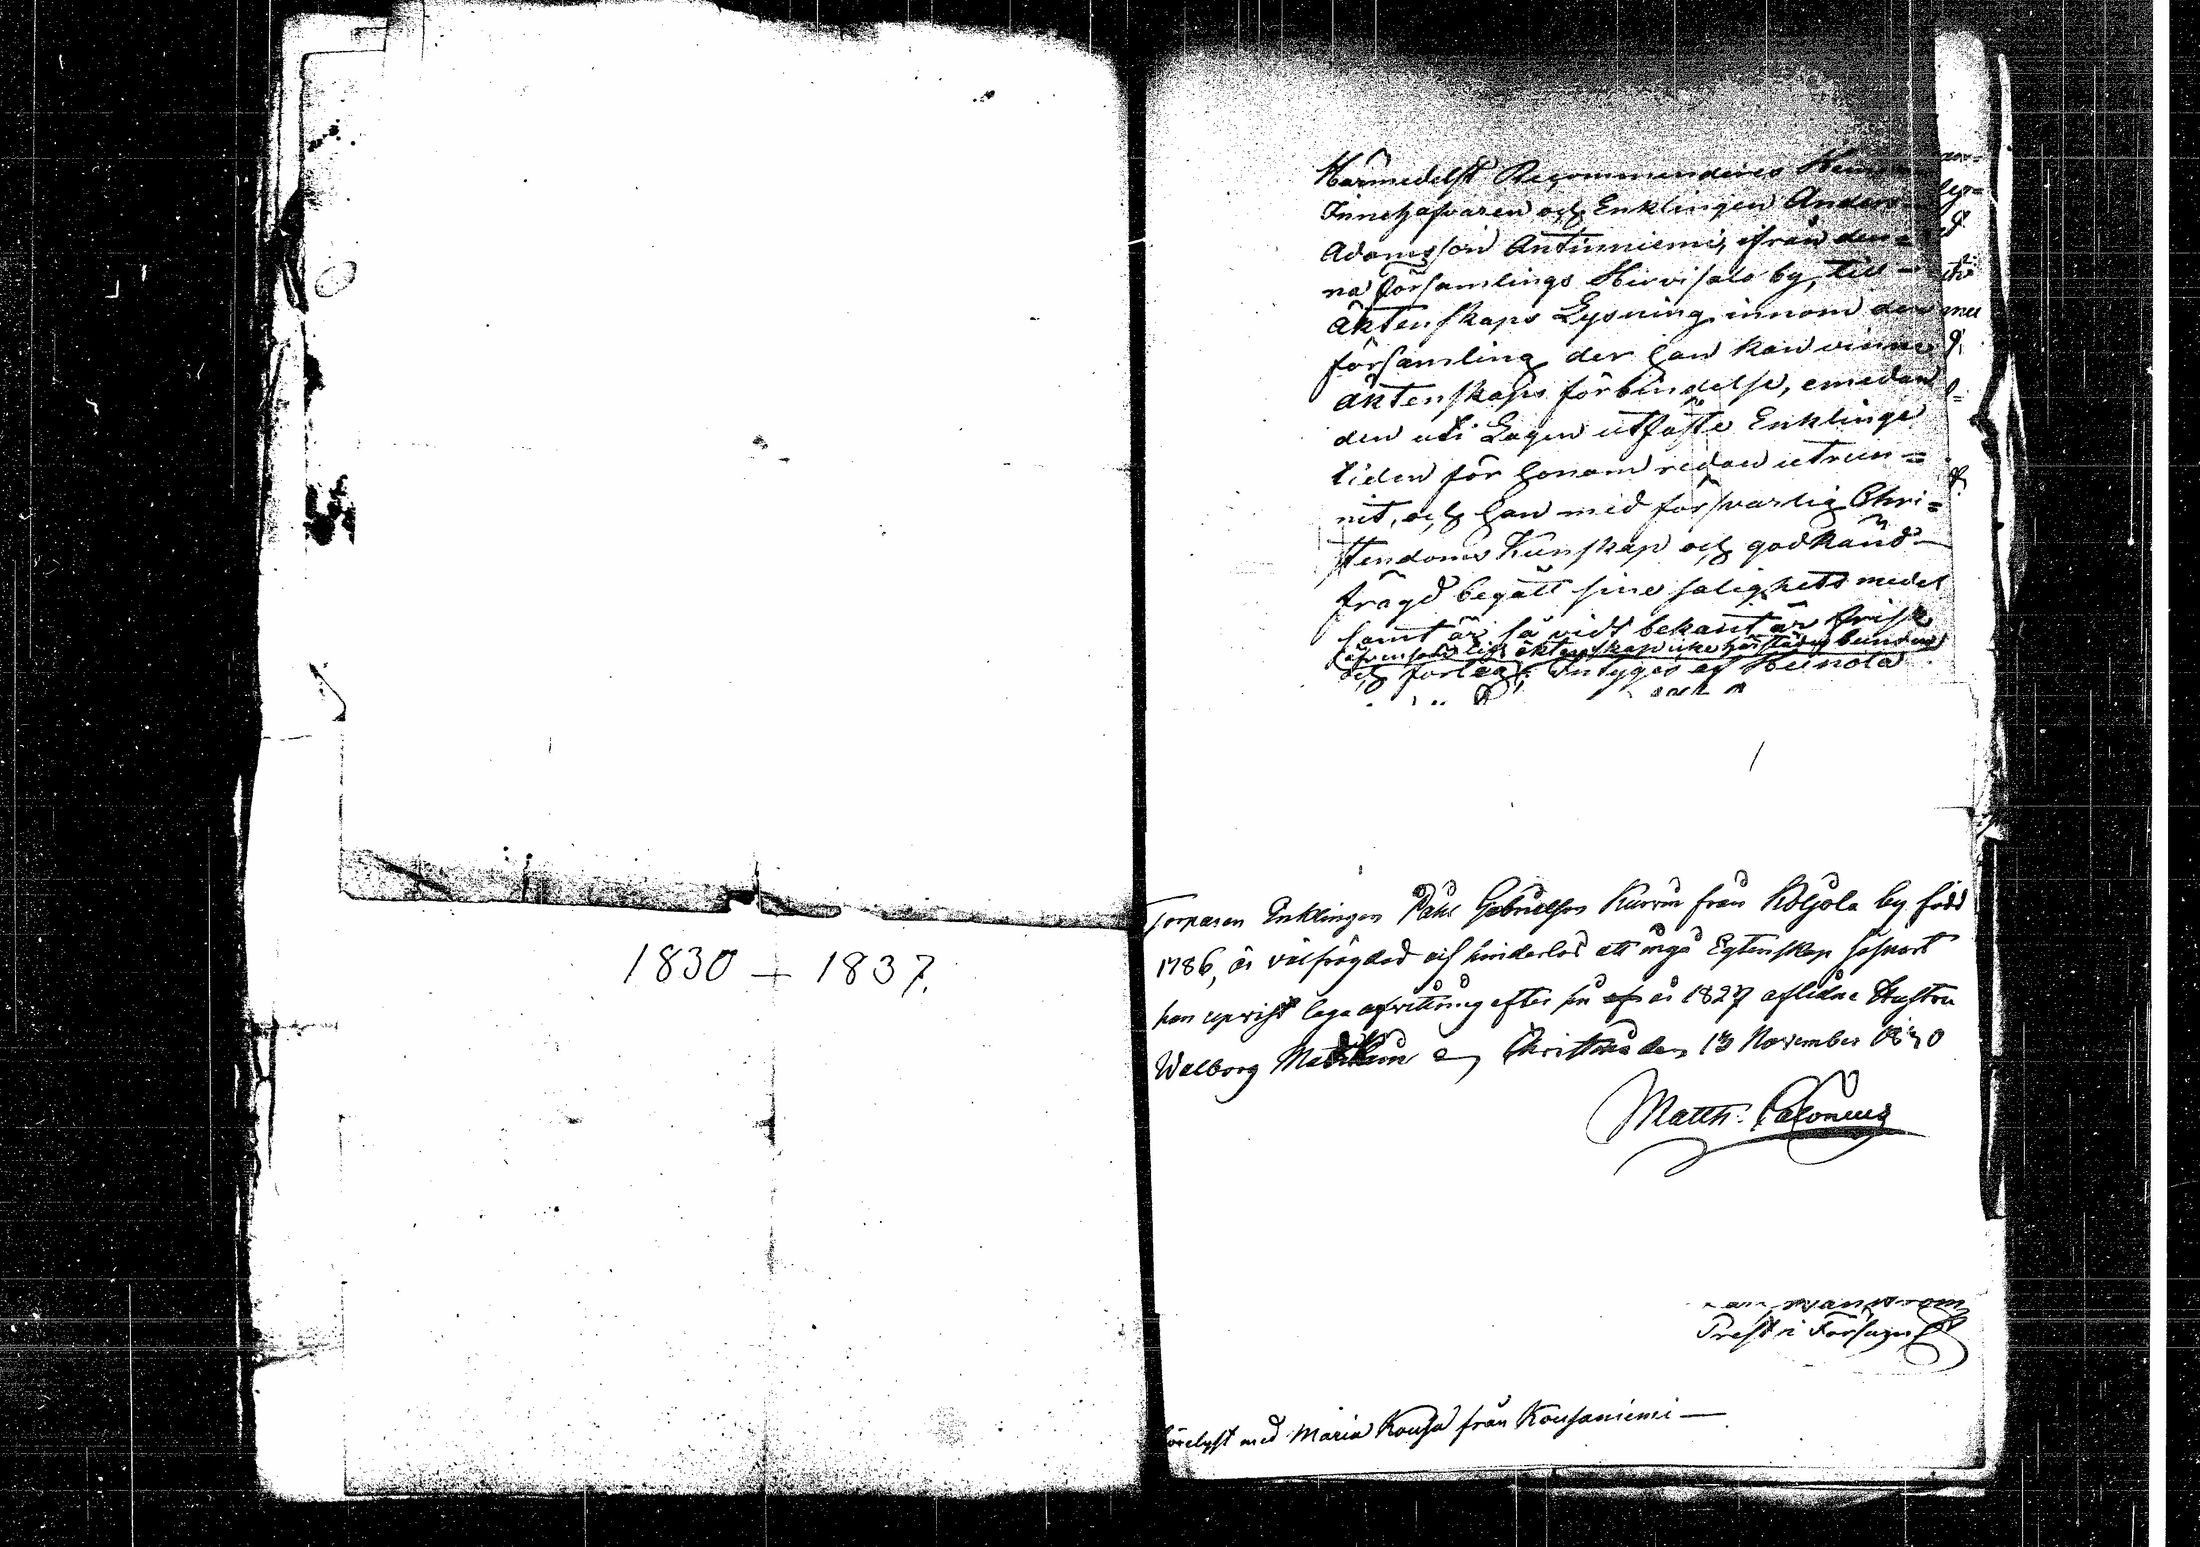 1830 — 1837.
Härmedelst Recommenderes
Innehafvaren och Enklingen Anders
Adamsson Anttinniemi, ifrån den=
na församlings Hirvisalo by, till
äktenskaps Lysning innom den
församling der han kan vinna
äktenskaps förbindelse, emedan
den uti Lagen utsatte Enklinge
tiden för honom redan utrun=
nit, och han med försvarlig Chri=
stendoms Kunskap och godkänd
frägd begått sine salighets medel
samt är så vidt bekant är frisk
äktenskap icke härstädes bunden
och förlagd; Intygas af Heinola
Torparen Enklingen Påhl Gabrielsson Kurrin från Koljola by född
1786, är välfrägdad och hinderlös att ingå Egtenskap såsnart
han upvist laga afvittring efter sin år 1827 aflidne Hustru
Walborg Christina den 13 November 1830
Matth. Calonius
Prest i Församl
Förelyst med Maria Kousa från Kousaniemi —